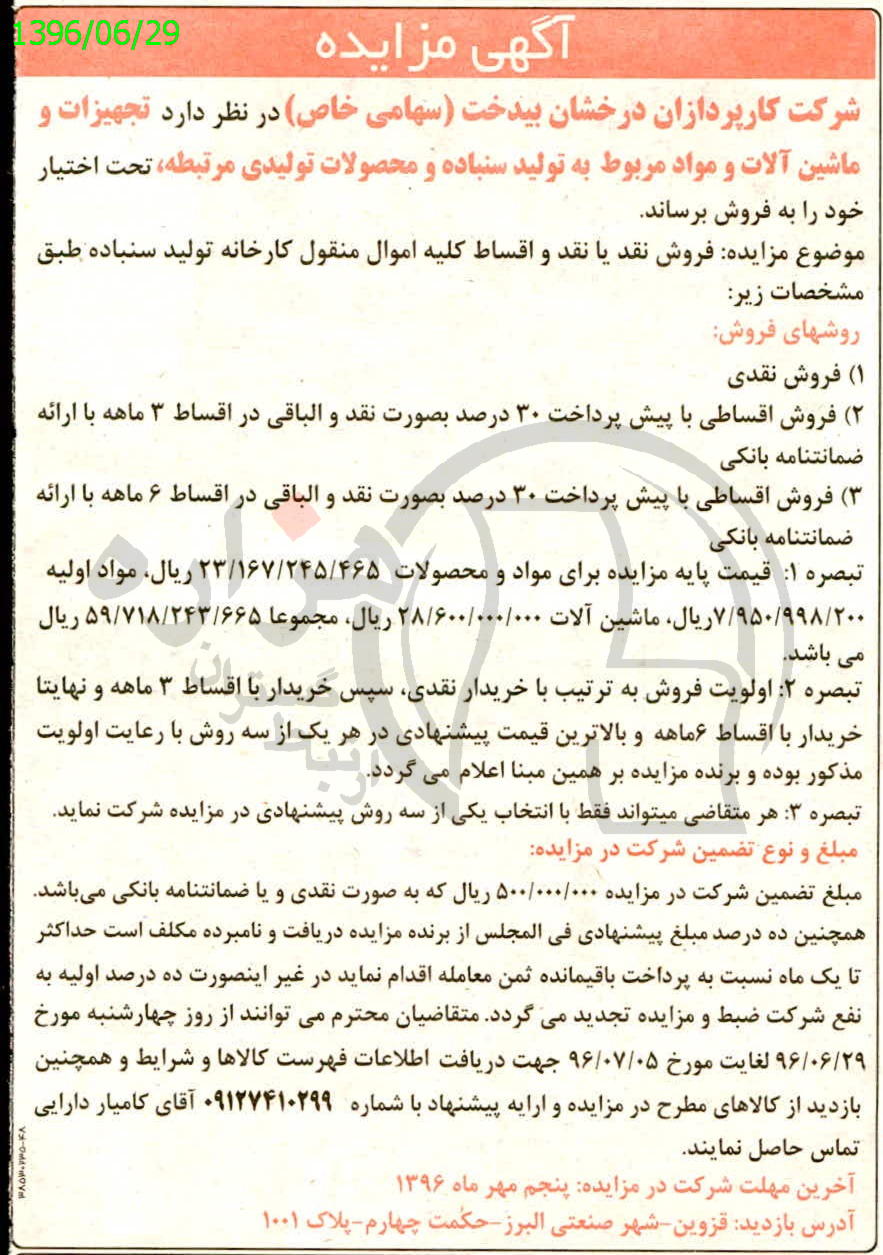 1396/06/29
آگهی مزایده
شرکت کارپردازان درخشان بیدخت (سهامی خاص) در نظر دارد تجهیزات و
ماشین آلات و مواد مربوط به تولید سنباده و محصولات تولیدی مرتبطه، تحت اختیار
خود را به فروش برساند.
موضوع مزایده: فروش نقد یا نقد و اقساط کلیه اموال منقول کارخانه تولید سنباده طبق
مشخصات زیر:
روشهای فروش:
۱) فروش نقدی
۲) فروش اقساطی با پیش پرداخت ۳۰ درصد بصورت نقد و الباقی در اقساط ۳ ماهه با ارائه
ضمانتنامه بانکی
۳) فروش اقساطی با پیش پرداخت ۳۰ درصد بصورت نقد و الباقی در اقساط ۶ ماهه با ارائه
ضمانتنامه بانکی
تبصره ۱: قیمت پایه مزایده برای مواد و محصولات ۲۳/۱۶۷/۲۴۵/۴۶۵ ریال، مواد اولیه
۷/۹۵۰/۹۹۸/۲۰۰ریال، ماشین آلات ۲۸/۶۰۰/۰۰۰/۰۰۰ ریال، مجموعا ۵۹/۷۱۸/۲۴۳/۶۶۵ ریال
می باشد.
تبصره ۲: اولویت فروش به ترتیب با خریدار نقدی، سپس خریدار با اقساط ۳ ماهه و نهایتا
خریدار با اقساط ۶ماهه و بالاترین قیمت پیشنهادی در هر یک از سه روش با رعایت اولویت
مذکور بوده و برنده مزایده بر همین مبنا اعلام می گردد.
تبصره ۳: هر متقاضی میتواند فقط با انتخاب یکی از سه روش پیشنهادی در مزایده شرکت نماید.
مبلغ و نوع تضمین شرکت در مزایده:
مبلغ تضمین شرکت در مزایده ۵۰۰/۰۰۰/۰۰۰ ریال که به صورت نقدی و یا ضمانتنامه بانکی می‌باشد.
همچنین ده درصد مبلغ پیشنهادی فی المجلس از برنده مزایده دریافت و نامبرده مکلف است حداکثر
تا یک ماه نسبت به پرداخت باقیمانده ثمن معامله اقدام نماید در غیر اینصورت ده درصد اولیه به
نفع شرکت ضبط و مزایده تجدید می گردد. متقاضیان محترم می توانند از روز چهارشنبه مورخ
۹۶/۰۶/۲۹ لغایت مورخ ۹۶/۰۷/۰۵ جهت دریافت اطلاعات فهرست کالاها و شرایط و همچنین
بازدید از کالاهای مطرح در مزایده و ارایه پیشنهاد با شماره ۰۹۱۲۷۴۱۰۲۹۹ آقای کامیار دارایی
تماس حاصل نمایند.
آخرین مهلت شرکت در مزایده: پنجم مهر ماه ۱۳۹۶
آدرس بازدید: قزوین-شهر صنعتی البرز-حکمت چهارم-پلاک ۱۰۰۱